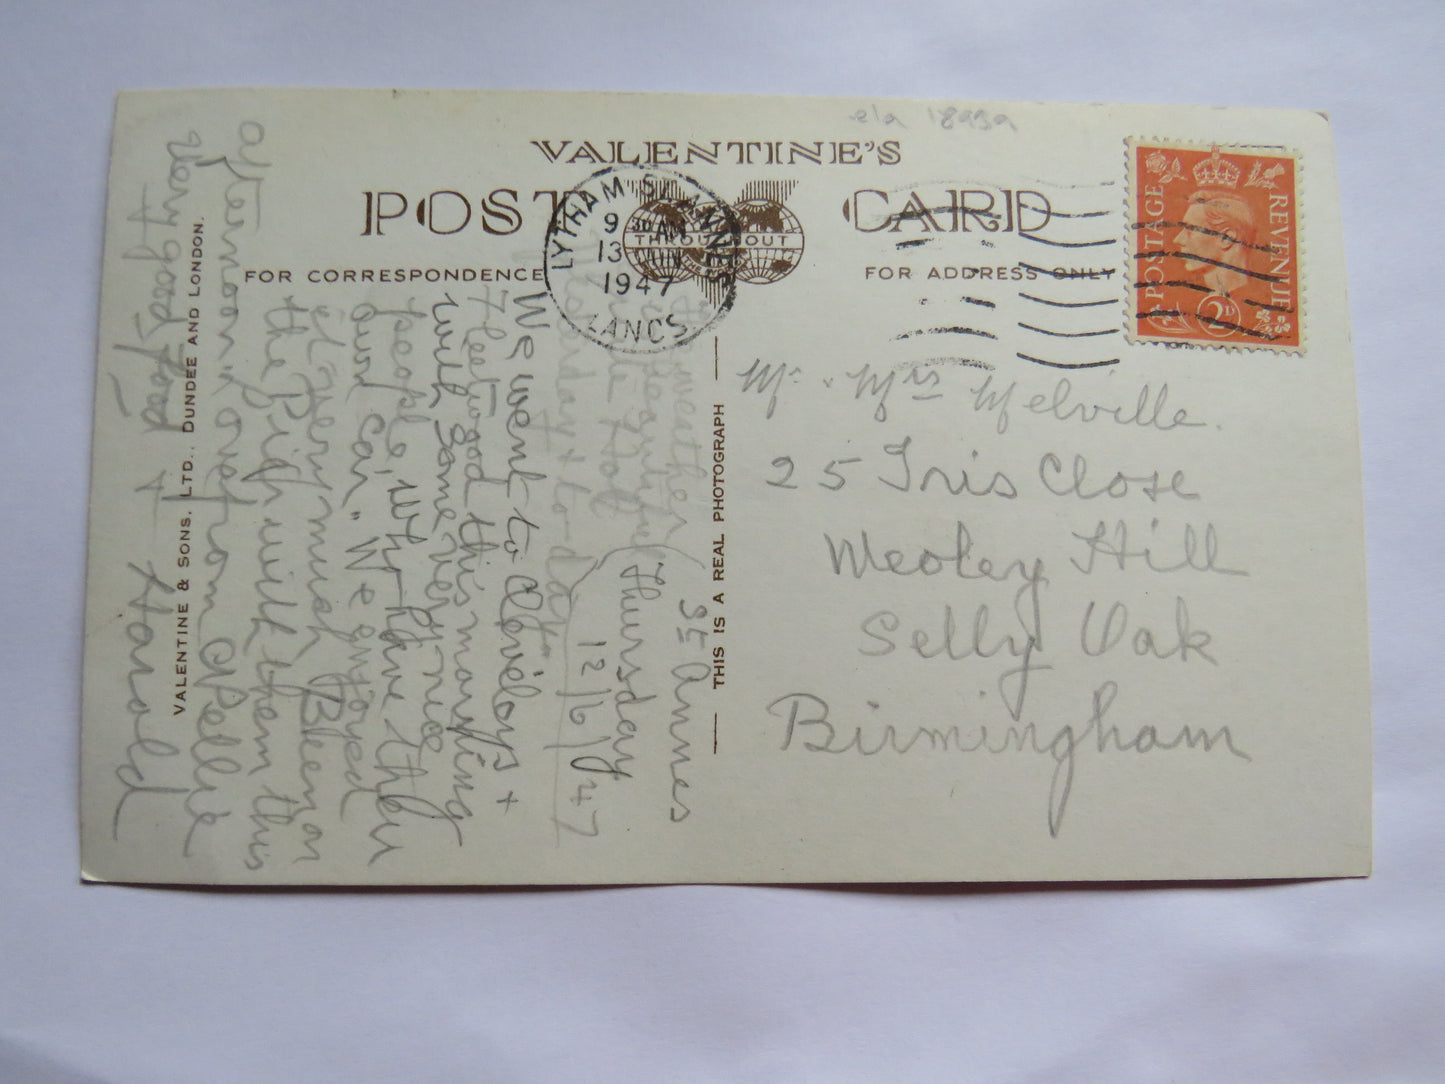 ela 18939
VALENTINE'S
POST CARD
THROUGHOUT
FOR CORRESPONDENCE
FOR ADDRESS ONLY
LYTHAM ST. ANNES
9 30 AM
13 JUN
1947
LANCS.
POSTAGE
REVENUE
2D
Mr. Mrs Melville.
25 Iris Close
Weoley Hill
Selly Oak
Birmingham
St Annes
Thursday
12/6/47
weather
beautiful
Hot
day + to day.
We went to Cleveleys +
Fleetwood this morning
with some very nice
people, who have their
own car. We enjoyed
it very much Been on
the Pier with them this
afternoon over from
Very good food +
Harold
THIS IS A REAL PHOTOGRAPH
VALENTINE & SONS, LTD., DUNDEE AND LONDON.